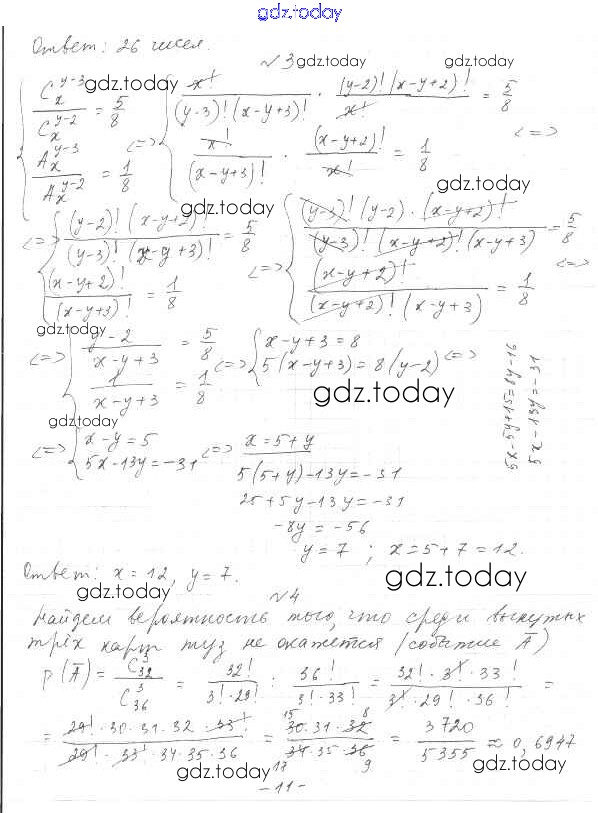 gdz.today
Ответ: 26 чисел.
№3 gdz.today gdz.today
{ C_x^{y-3} / C_x^{y-2} = 5/8 gdz.today <=> { x! / (y-3)!(x-y+3)! · (y-2)!(x-y+2)! / x! = 5/8
A_x^{y-3} / A_x^{y-2} = 1/8 x! / (x-y+3)! · (x-y+2)! / x! = 1/8 <=>
gdz.today gdz.today
<=> { (y-2)!(x-y+2)! / (y-3)!(x-y+3)! = 5/8 <=> { (y-3)!(y-2)·(x-y+2)! / (y-3)!(x-y+2)!(x-y+3) = 5/8
(x-y+2)! / (x-y+3)! = 1/8 (x-y+2)! / (x-y+2)!(x-y+3) = 1/8 <=>
gdz.today
<=> { y-2 / x-y+3 = 5/8 <=> { x-y+3=8
1 / x-y+3 = 1/8 5(x-y+3)=8(y-2) <=>
5x-5y+15=8y-16
5x-13y=-31
gdz.today
gdz.today
<=> { x-y=5 <=> x=5+y
5x-13y=-31 5(5+y)-13y=-31
gdz.today 25+5y-13y=-31
-8y=-56
y=7 ; x=5+7=12.
Ответ: x=12, y=7.
gdz.today gdz.today
№4
Найдем вероятность того, что среди вынутых
трёх карт туз не окажется (событие A̅)
P(A̅) = C_32^3 / C_36^3 = 32! / 3!·29! : 36! / 3!·33! = 32!·3!·33! / 3!·29!·36! =
= 29!·30·31·32·33! / 29!·33!·34·35·36 = 15 30·31·32 8 / 34·35·36 17 9 = 3720 / 5355 ≈ 0,6947
gdz.today gdz.today
-11-